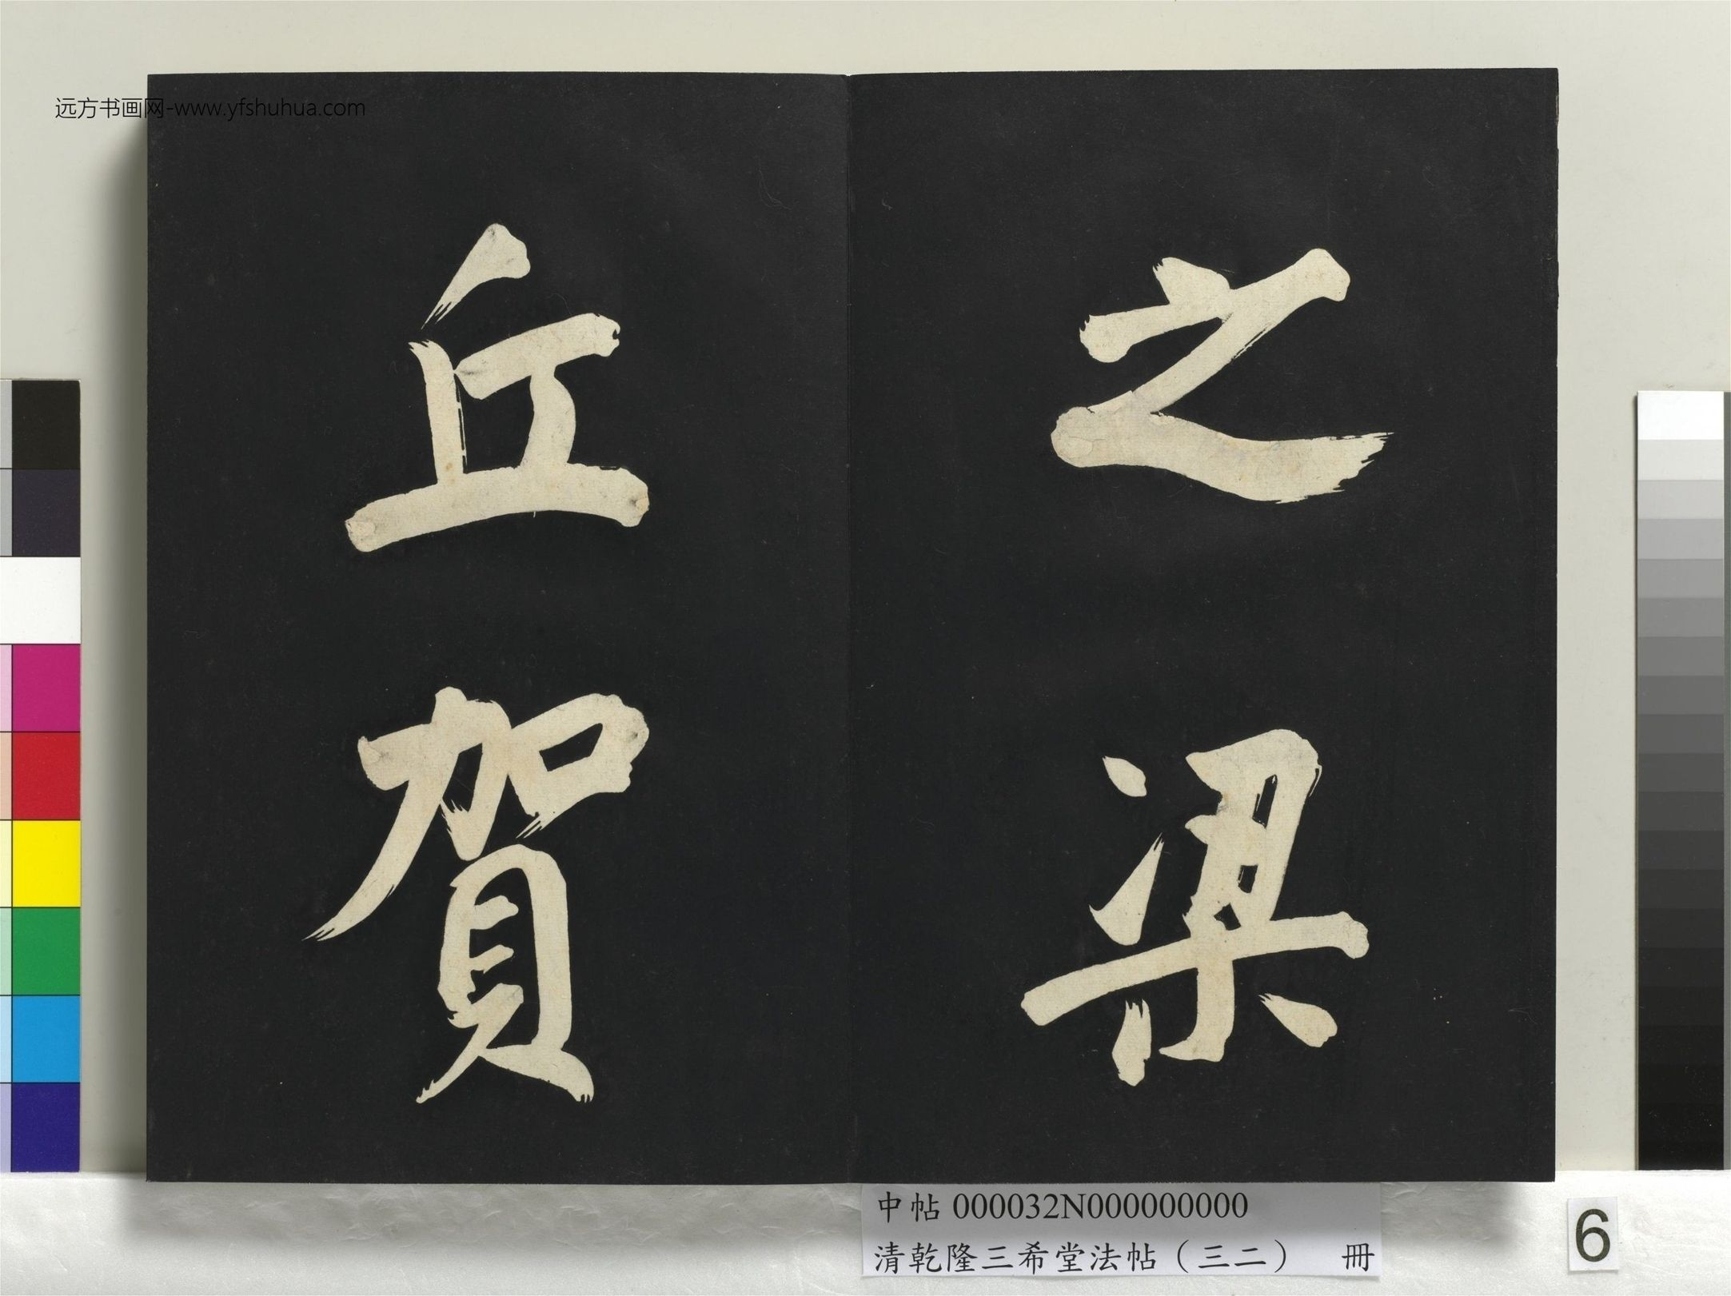 远方书画网-www.yfshuhua.com
之梁
丘賀
中帖 000032N000000000
清乾隆三希堂法帖（三二） 冊
6